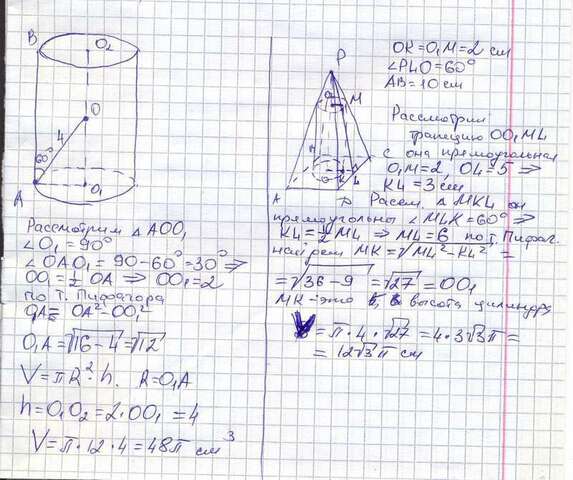 B
O₂
O
4
60°
A
O₁
Рассмотрим △ AOO₁
∠O₁ = 90°
∠OAO₁ = 90-60°=30° ⇒
OO₁ = ½ OA ⇒ OO₁=2
по т. Пифагора
OA² - OO₁²
O₁A = √16-4 = √12
V = πR²·h. R=O₁A
h = O₁O₂ = 2·OO₁ = 4
V = π·12·4 = 48π см³
P
M
K
A
OK = O₁M = 2 см
∠PLO = 60°
AB = 10 см
Рассмотрим
трапецию OO₁ML
она прямоугольная
O₁M=2, OL=5 ⇒
KL = 3 см
Рассм. △ MKL он
прямоугольный ∠MLK=60° ⇒
KL = ½ ML ⇒ ML=6 по т. Пифаг.
найдем MK = √ML²-KL² =
= √36-9 = √27 = OO₁
MK - это высота цилиндра
V = π·4·√27 = 4·3√3π =
= 12√3π см